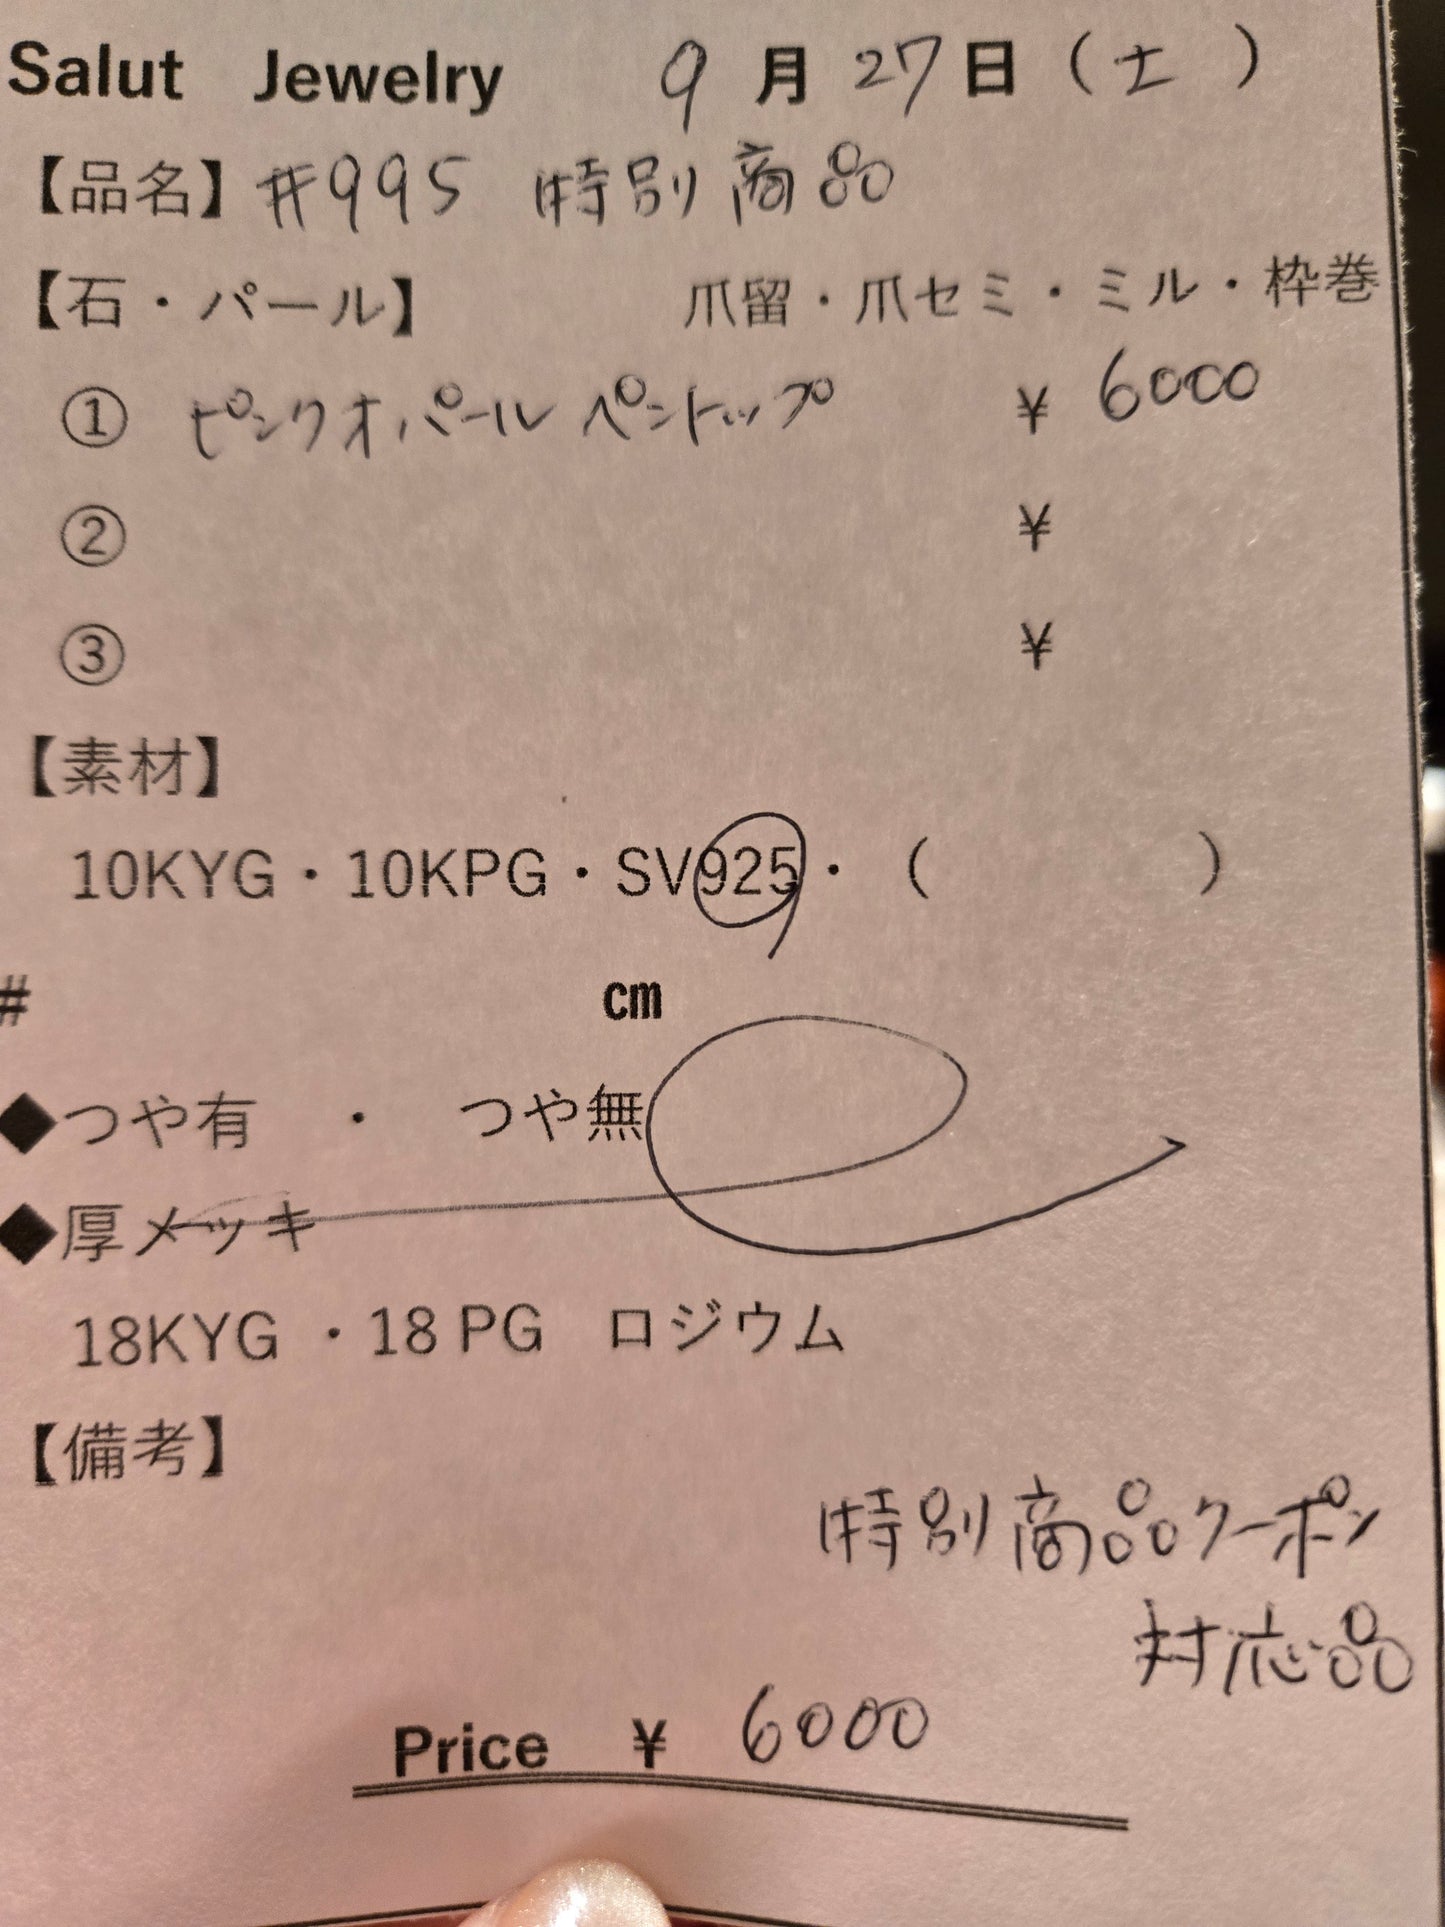 Salut Jewelry 9月27日(土)
【品名】#995 特別商品
【石・パール】 爪留・爪セミ・ミル・枠巻
① ピンクオパール ペントップ ¥ 6000
② ¥
③ ¥
【素材】
10KYG・10KPG・SV925・( )
# cm
◆つや有 ・ つや無
◆厚メッキ
18KYG ・18 PG ロジウム
【備考】
特別商品クーポン
対応品
Price ¥ 6000